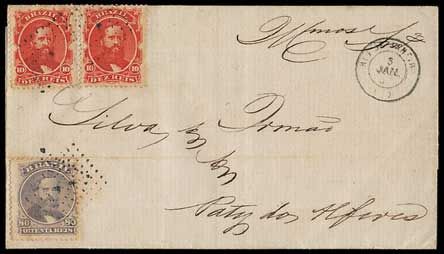 BRAZIL BRAZIL
10 10 10 10
DEZ REIS DEZ REIS
Illmos Snrs
3
JAN.
Silva & Irmão
BRAZIL
80 80
OITENTA REIS
Paty do Alferes